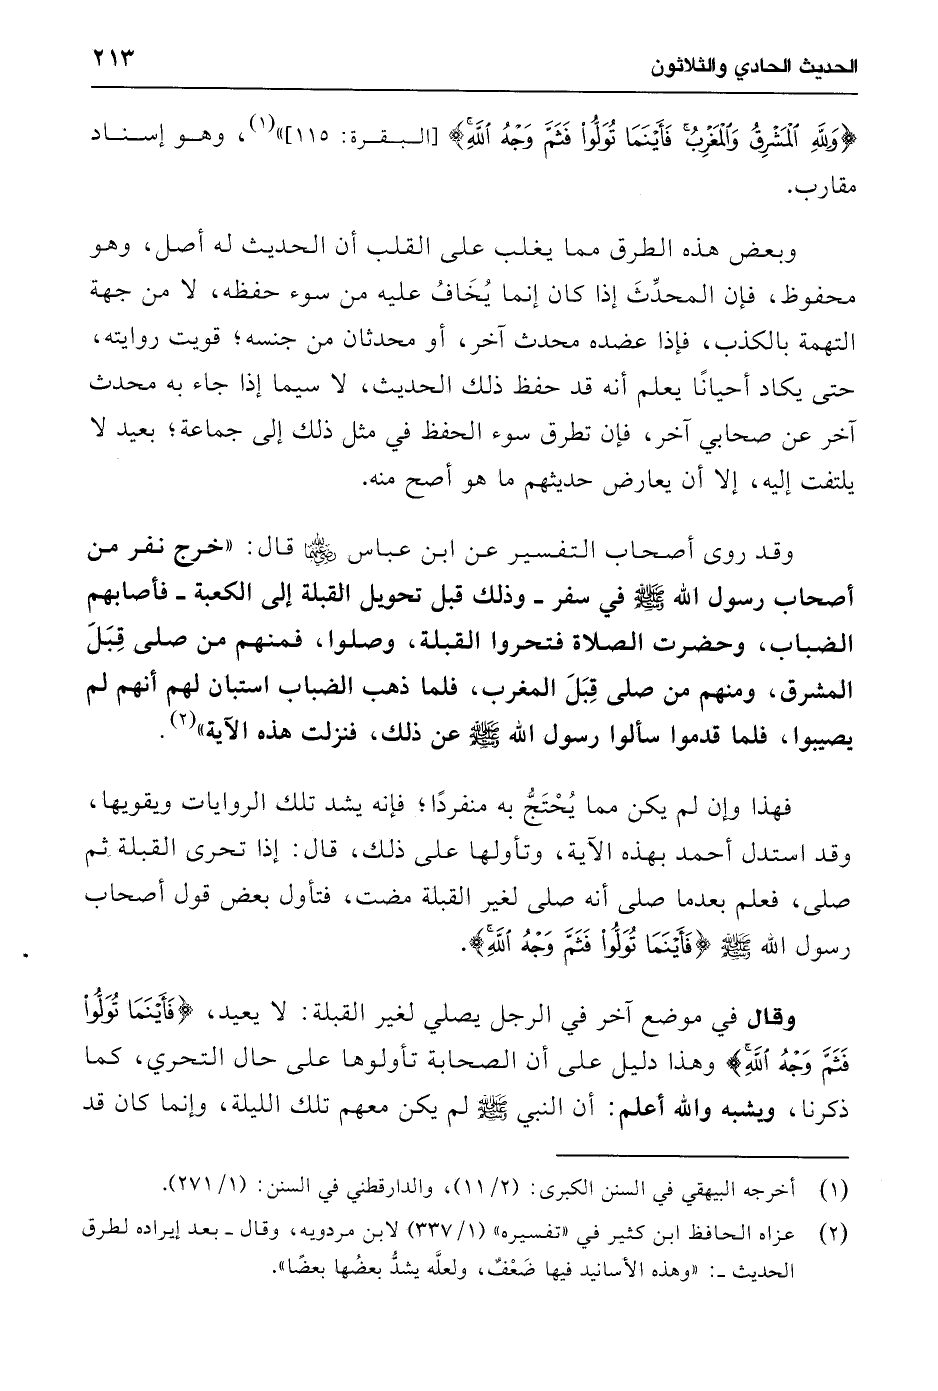 الحديث الحادي والثلاثون ٢١٣
﴿وَلِلَّهِ الْمَشْرِقُ وَالْمَغْرِبُ فَأَيْنَمَا تُوَلُّوا فَثَمَّ وَجْهُ اللَّهِ﴾ [البقرة: ١١٥]»(١)، وهو إسناد
مقارب.
وبعض هذه الطرق مما يغلب على القلب أن الحديث له أصل، وهو
محفوظ، فإن المحدِّثَ إذا كان إنما يُخَافُ عليه من سوء حفظه، لا من جهة
التهمة بالكذب، فإذا عضده محدث آخر، أو محدثان من جنسه؛ قويت روايته،
حتى يكاد أحيانًا يعلم أنه قد حفظ ذلك الحديث، لا سيما إذا جاء به محدث
آخر عن صحابي آخر، فإن تطرق سوء الحفظ في مثل ذلك إلى جماعة؛ بعيد لا
يلتفت إليه، إلا أن يعارض حديثهم ما هو أصح منه.
وقد روى أصحاب التفسير عن ابن عباس رضي الله عنهما قال: «خرج نفر من
أصحاب رسول الله ﷺ في سفر ـ وذلك قبل تحويل القبلة إلى الكعبة ـ فأصابهم
الضباب، وحضرت الصلاة فتحروا القبلة، وصلوا، فمنهم من صلى قِبَلَ
المشرق، ومنهم من صلى قِبَلَ المغرب، فلما ذهب الضباب استبان لهم أنهم لم
يصيبوا، فلما قدموا سألوا رسول الله ﷺ عن ذلك، فنزلت هذه الآية»(٢).
فهذا وإن لم يكن مما يُحْتَجُّ به منفردًا؛ فإنه يشد تلك الروايات ويقويها،
وقد استدل أحمد بهذه الآية، وتأولها على ذلك، قال: إذا تحرى القبلة ثم
صلى، فعلم بعدما صلى أنه صلى لغير القبلة مضت، فتأول بعض قول أصحاب
رسول الله ﷺ ﴿فَأَيْنَمَا تُوَلُّوا فَثَمَّ وَجْهُ اللَّهِ﴾.
وقال في موضع آخر في الرجل يصلي لغير القبلة: لا يعيد، ﴿فَأَيْنَمَا تُوَلُّوا
فَثَمَّ وَجْهُ اللَّهِ﴾ وهذا دليل على أن الصحابة تأولوها على حال التحري، كما
ذكرنا، ويشبه والله أعلم: أن النبي ﷺ لم يكن معهم تلك الليلة، وإنما كان قد
(١) أخرجه البيهقي في السنن الكبرى: (١١/٢)، والدارقطني في السنن: (٢٧١/١).
(٢) عزاه الحافظ ابن كثير في «تفسيره» (٣٣٧/١) لابن مردويه، وقال ـ بعد إيراده لطرق
الحديث ـ: «وهذه الأسانيد فيها ضَعْفٌ، ولعلَّه يشدُّ بعضُها بعضًا».